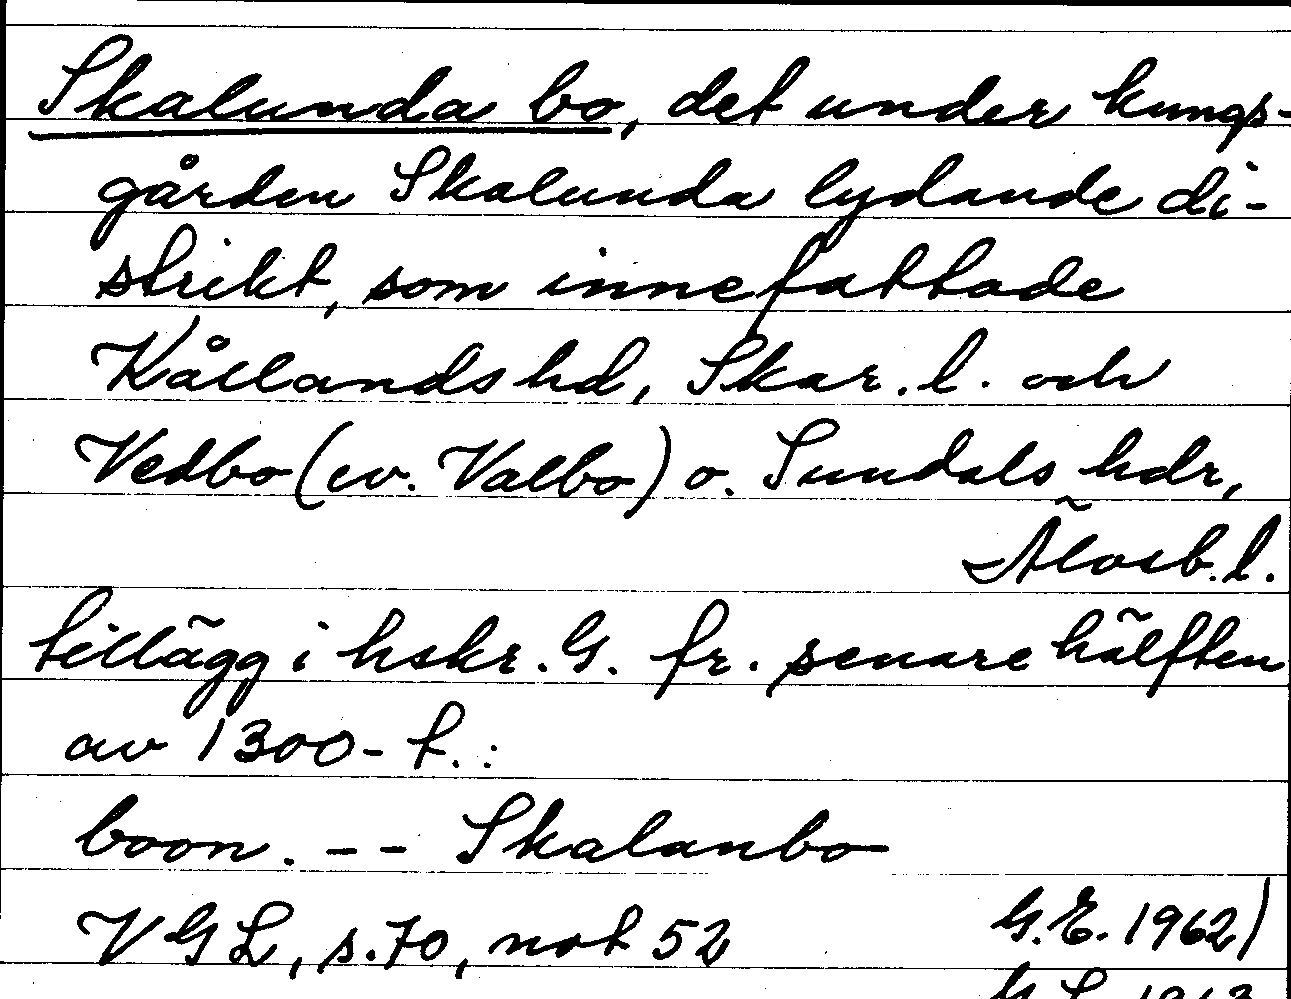 Skalunda bo, det under kungs-
gården Skalunda lydande di-
strikt, som innefattade
Kållands hd, Skar. l. och
Vedbo (ev. Valbo) o. Sundals hdr,
Älvsb. l.
tillägg i hskr. G. fr. senare hälften
av 1300-t.:
boon. -- Skalanbo
VGL, s. 70, not 52
G.E. 1962)